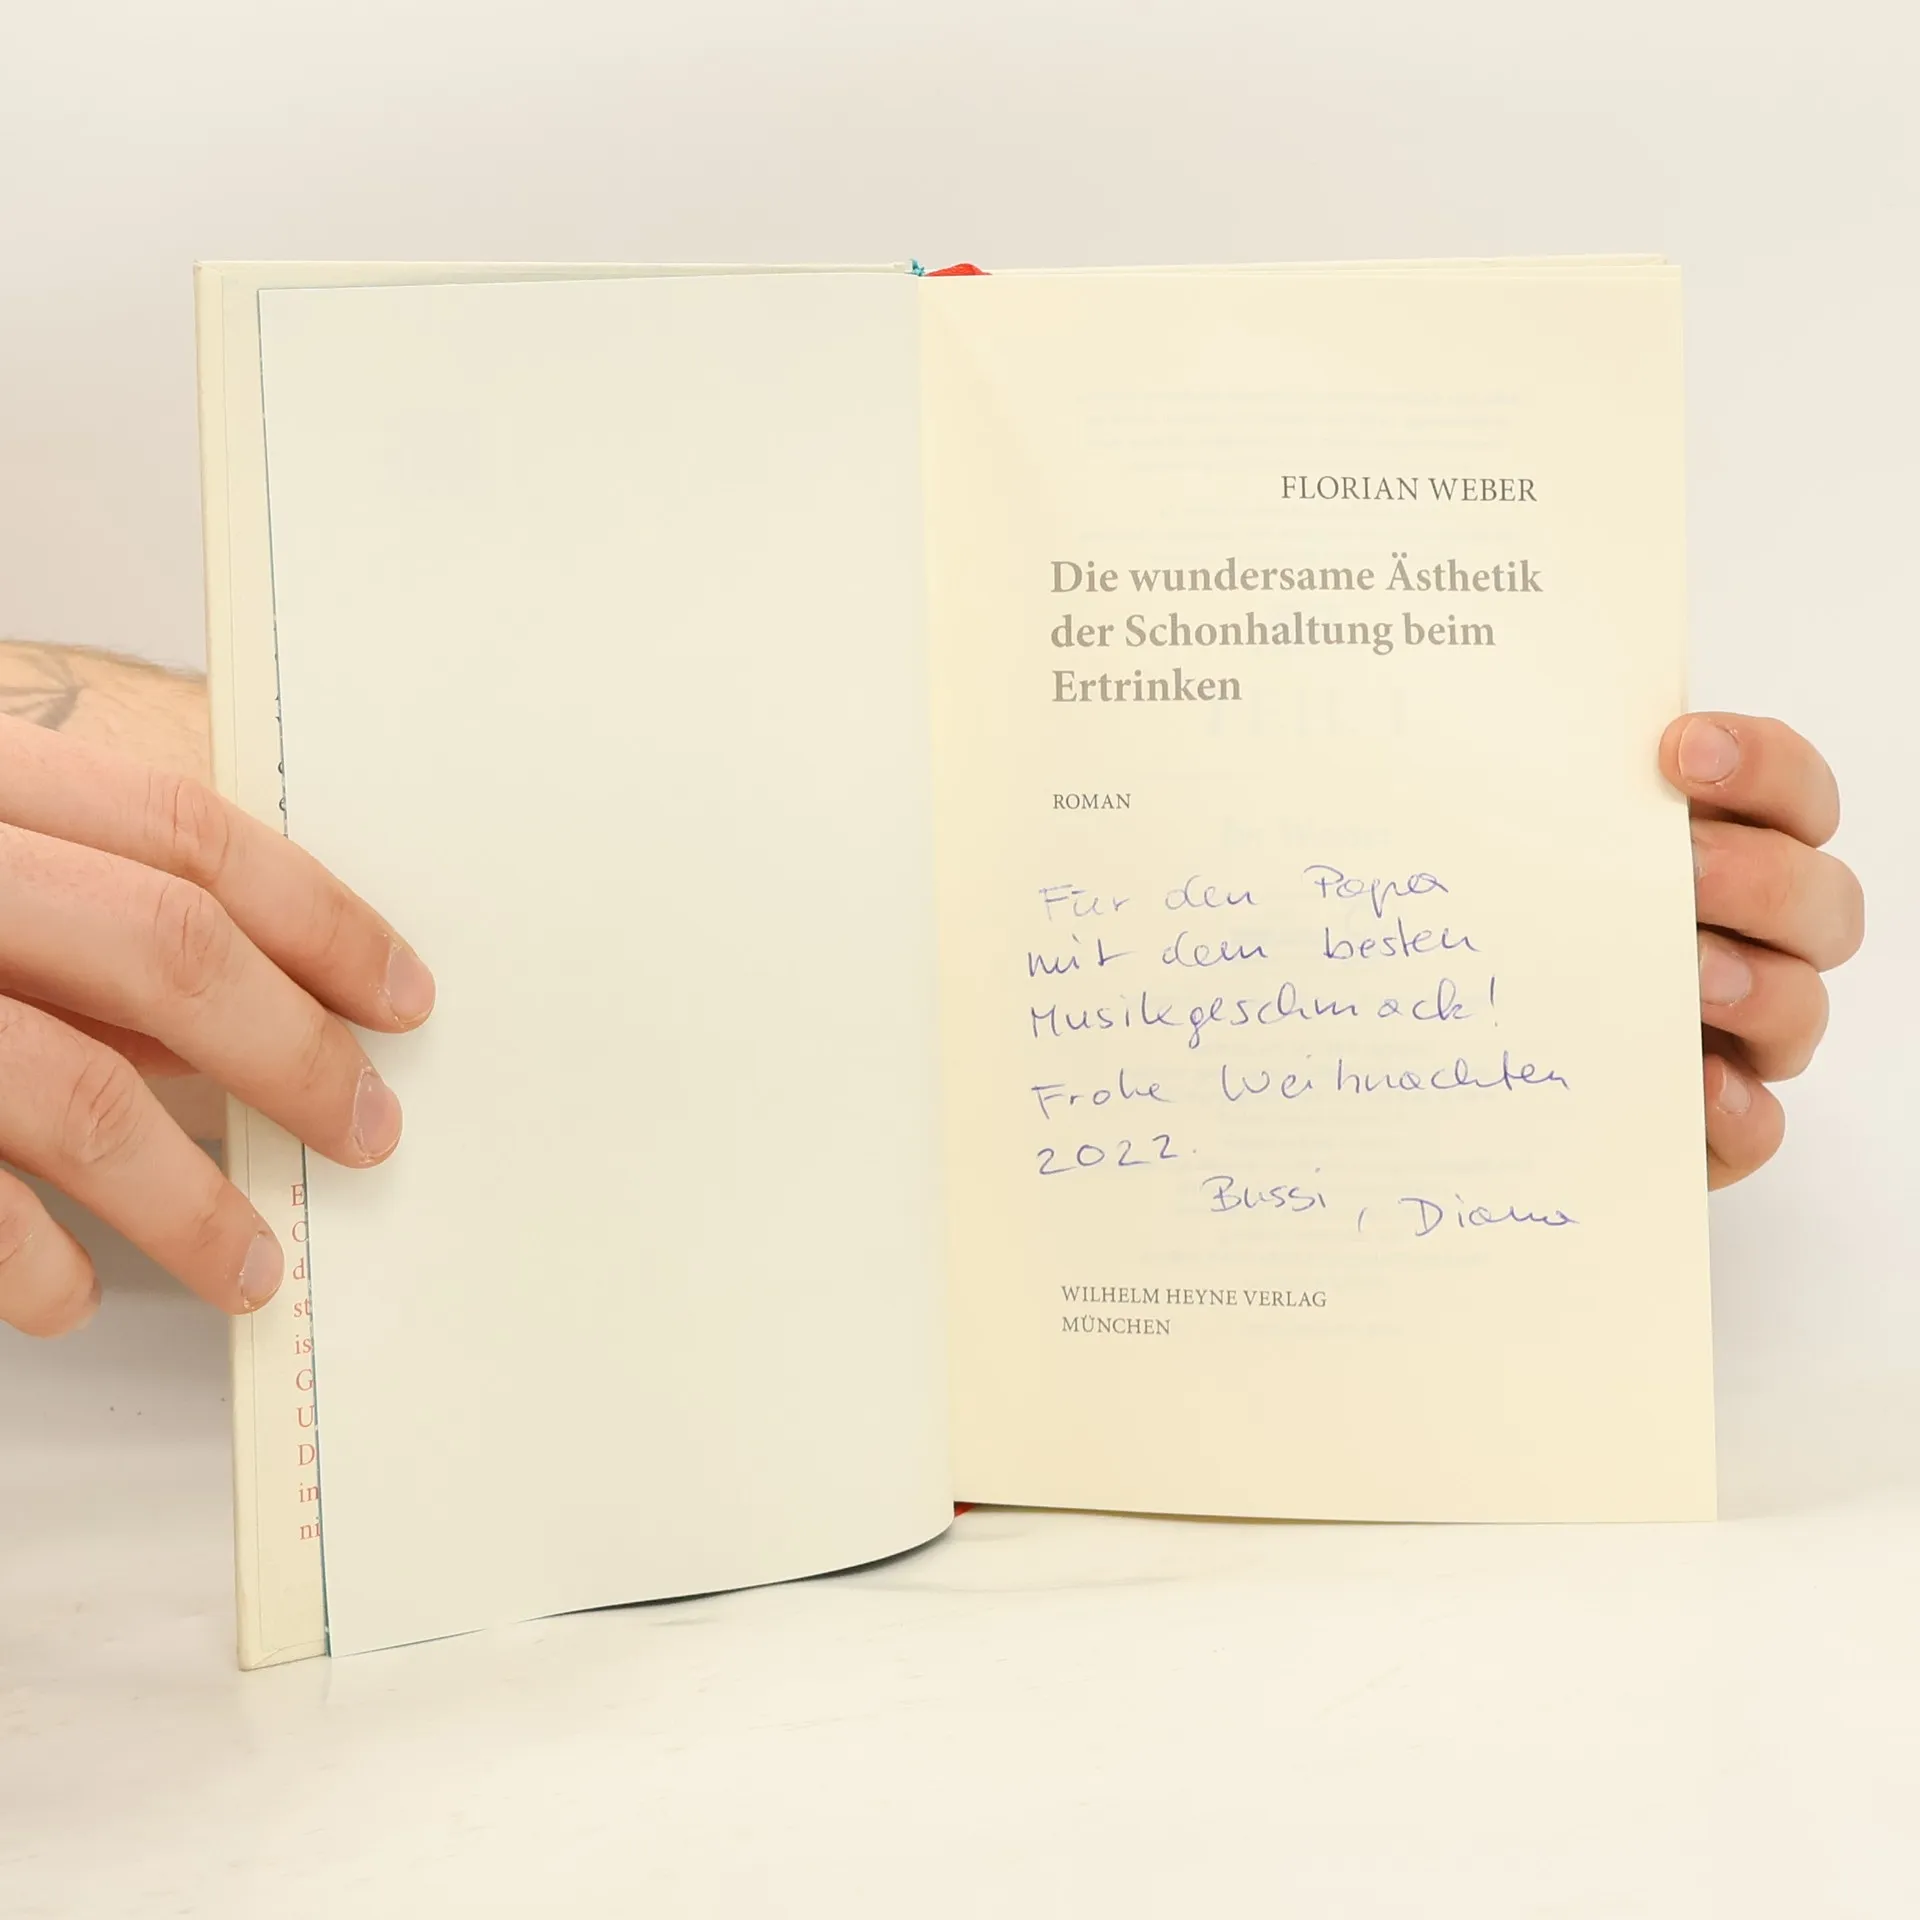 E
C
d
st
is
G
U
D
in
ni
FLORIAN WEBER
Die wundersame Ästhetik
der Schonhaltung beim
Ertrinken
ROMAN
Für den Papa
mit dem besten
Musikgeschmack!
Frohe Weihnachten
2022.
Bussi, Diana
WILHELM HEYNE VERLAG
MÜNCHEN